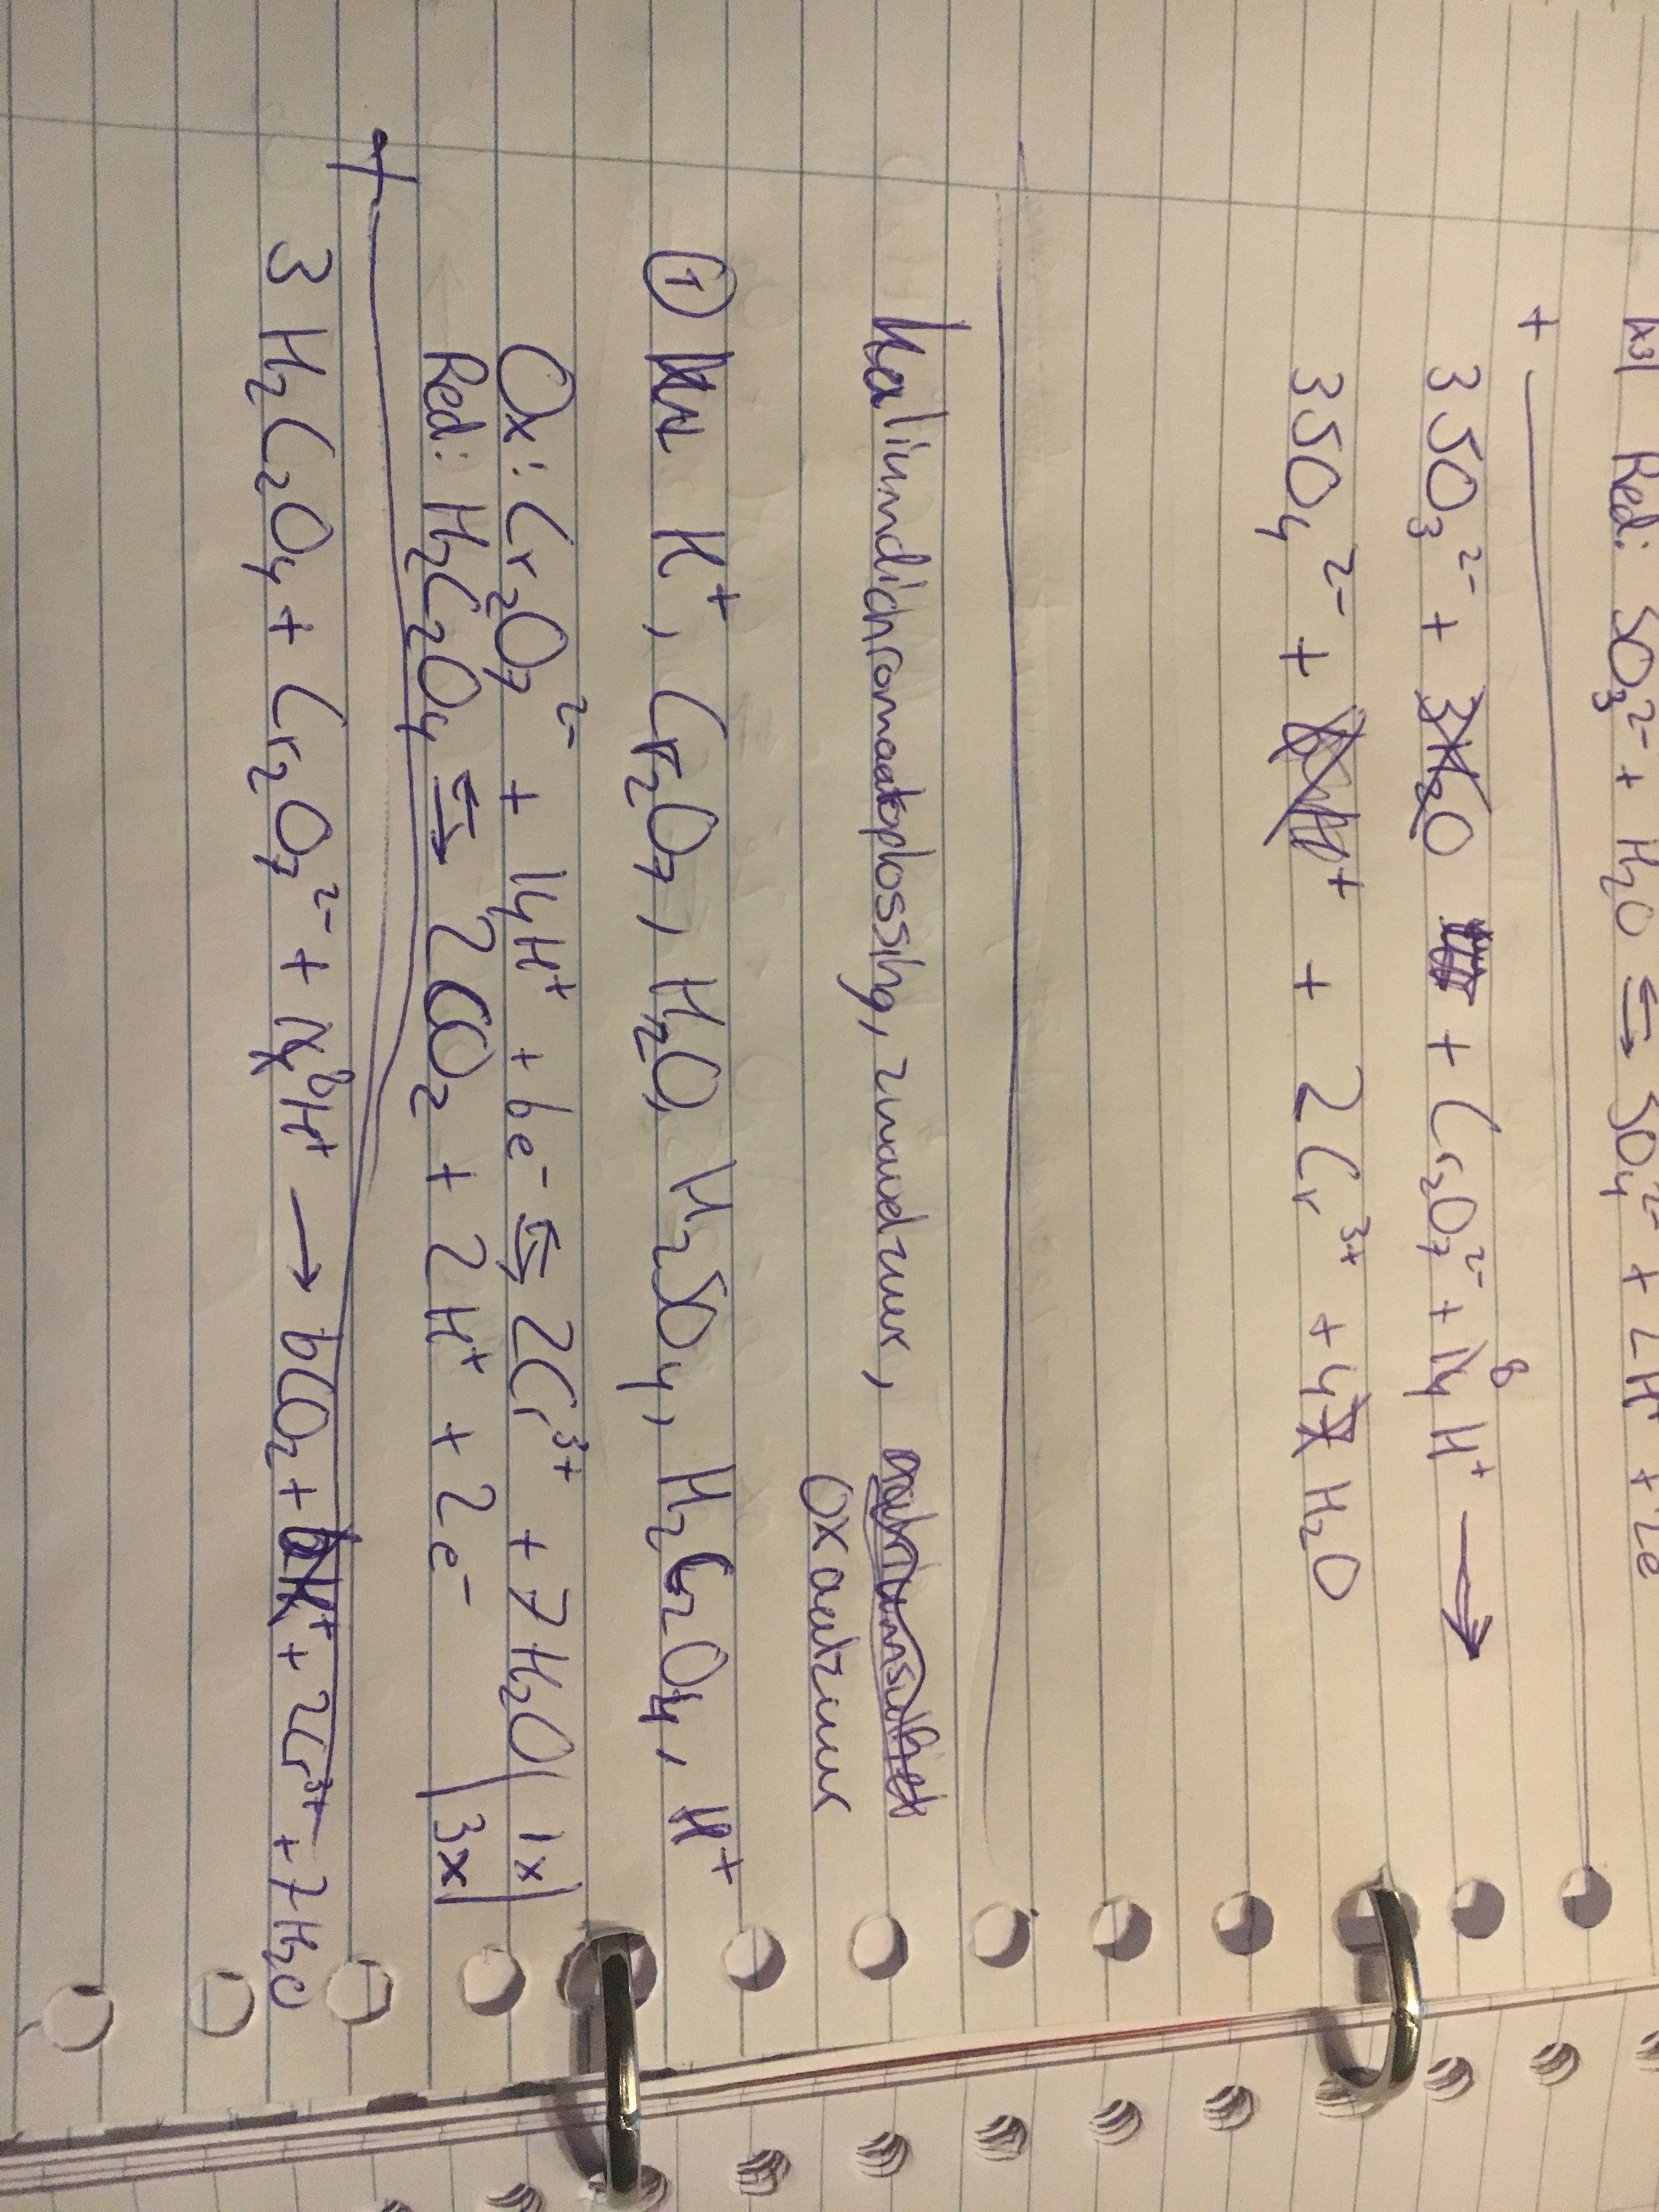 x3| Red: SO₃²⁻ + H₂O ⇆ SO₄²⁻ + 2H⁺ + 2e
+
3 SO₃²⁻ + 3H₂O + Cr₂O₇²⁻ + 14 8 H⁺ →
3SO₄²⁻ + 6H⁺ + 2Cr³⁺ + 4 7 H₂O
Kaliumdichromaatoplossing, zwavelzuur,
oxaalzuur
① K⁺, Cr₂O₇, H₂O, H₂SO₄, H₂C₂O₄, H⁺
Ox: Cr₂O₇²⁻ + 14H⁺ + 6e⁻ ⇆ 2Cr³⁺ + 7H₂O | 1x|
Red: H₂C₂O₄ ⇆ 2CO₂ + 2H⁺ + 2e⁻ | 3x|
+
3 H₂C₂O₄ + Cr₂O₇²⁻ + 14 8H⁺ → 6CO₂ + 6H⁺ + 2Cr³⁺ + 7H₂O